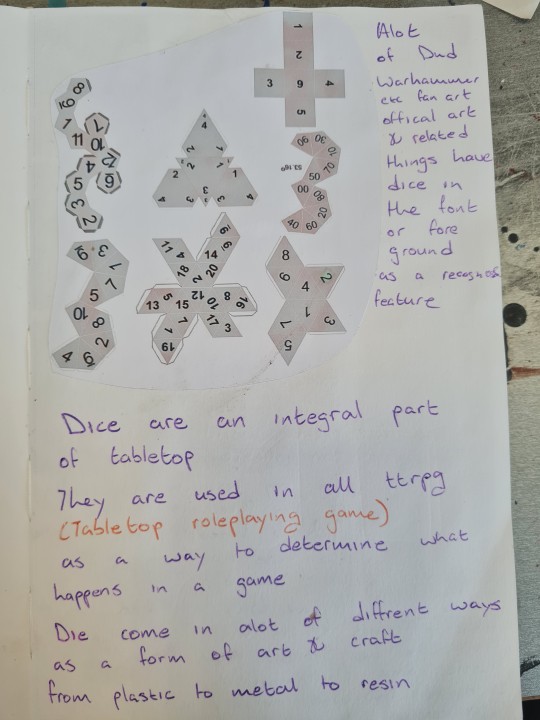 Alot
of Dnd
Warhammer
etc fan art
offical art
& related
things have
dice in
the font
or fore
ground
as a
feature
1
2
3 6 4
5
4
2 1
3
8
6 4 2
7 1 3
5
Dice are an integral part
of tabletop
They are used in all ttrpg
(Tabletop roleplaying game)
as a way to determine what
happens in a game
Die come in alot of diffrent ways
as a form of art & craft
from plastic to metal to resin